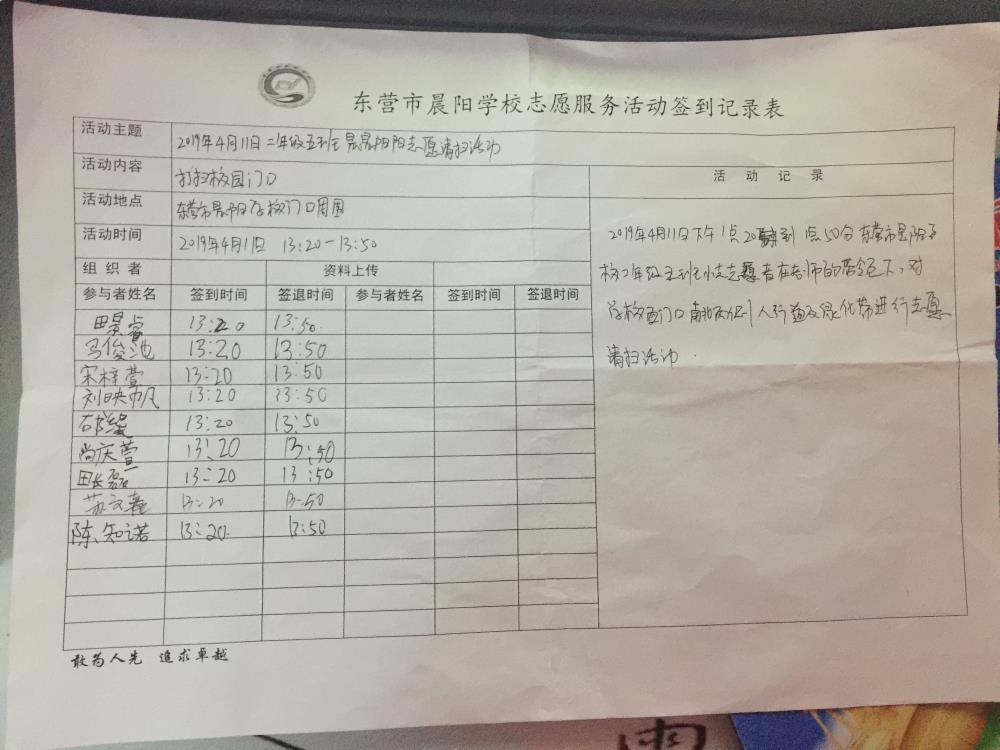 东营市晨阳学校志愿服务活动签到记录表
活动主题 2019年4月11日二年级五班晨晨阳阳志愿清扫活动
活动内容 打扫校园门口 活动记录
活动地点 东营市晨阳学校门口周围
活动时间 2019年4月11日 13:20-13:50
2019年4月11日下午1点20 到1点50分东营市晨阳学
校二年级五班小志愿者在老师的带领下,对
学校西门口南北两侧人行道及绿化带进行志愿
清扫活动.
组织者 资料上传
参与者姓名 签到时间 签退时间 参与者姓名 签到时间 签退时间
田景睿 13:20 13:50
马俊池 13:20 13:50
宋梓萱 13:20 13:50
刘映帆 13:20 13:50
13:20 13:50
尚庆萱 13:20 13:50
田长磊 13:20 13:50
苏文 13:20 13:50
陈知诺 13:20 13:50
敢为人先 追求卓越